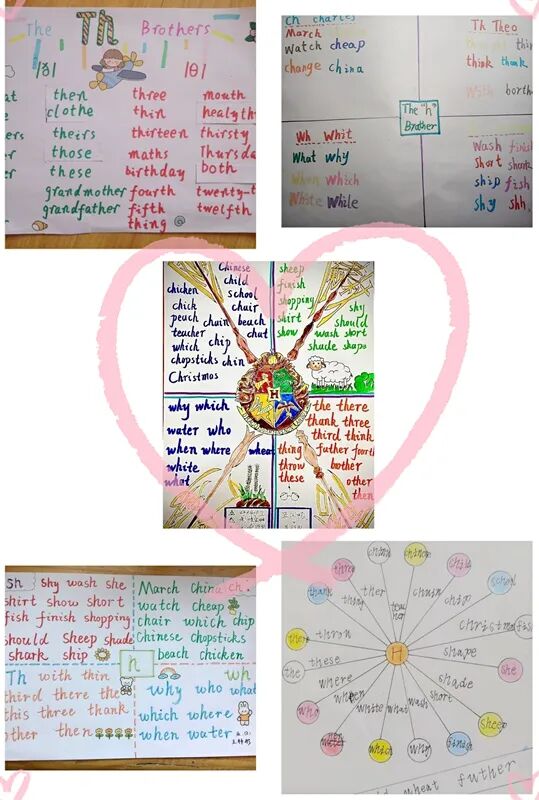 The Th Brothers
/ð/ /θ/
then three mouth
clothe thin
theirs thirteen thirsty
those maths
these birthday both
grandmother fourth
grandfather fifth twelfth
thing
Ch charles
March
Watch cheap
change China
Th Theo
think
with
The "h"
Brother
Wh Whit
What Why
When Which
White While
wash
short
ship fish
shy shh
Chinese
child
chicken school
chick chair
peach chain beach
teacher chat
which chip
chopsticks chin
Christmas
sheep
finish
shopping
shirt
show
shy
should
wash short
shade shape
H
why which
water who
when where wheat
white
what
the there
thank three
third think
futher fourth
bother
other
then
thing
throw
these
Sh shy wash she
shirt show short
fish finish shopping
should Sheep shade
shark ship
March China ch.
watch cheap
chair which chip
Chinese chopsticks
beach chicken
h
Th with thin
third there the
this three thank
other then
wh
why who what
which where
when water
H
china
chinese
child
school
three
thank
thing
ther
teacher
chain
chip
there
thron
the
these
where
when
who
water
white
what
which
why
wash
short
finish
shade
sheep
shape
she
wheat futher